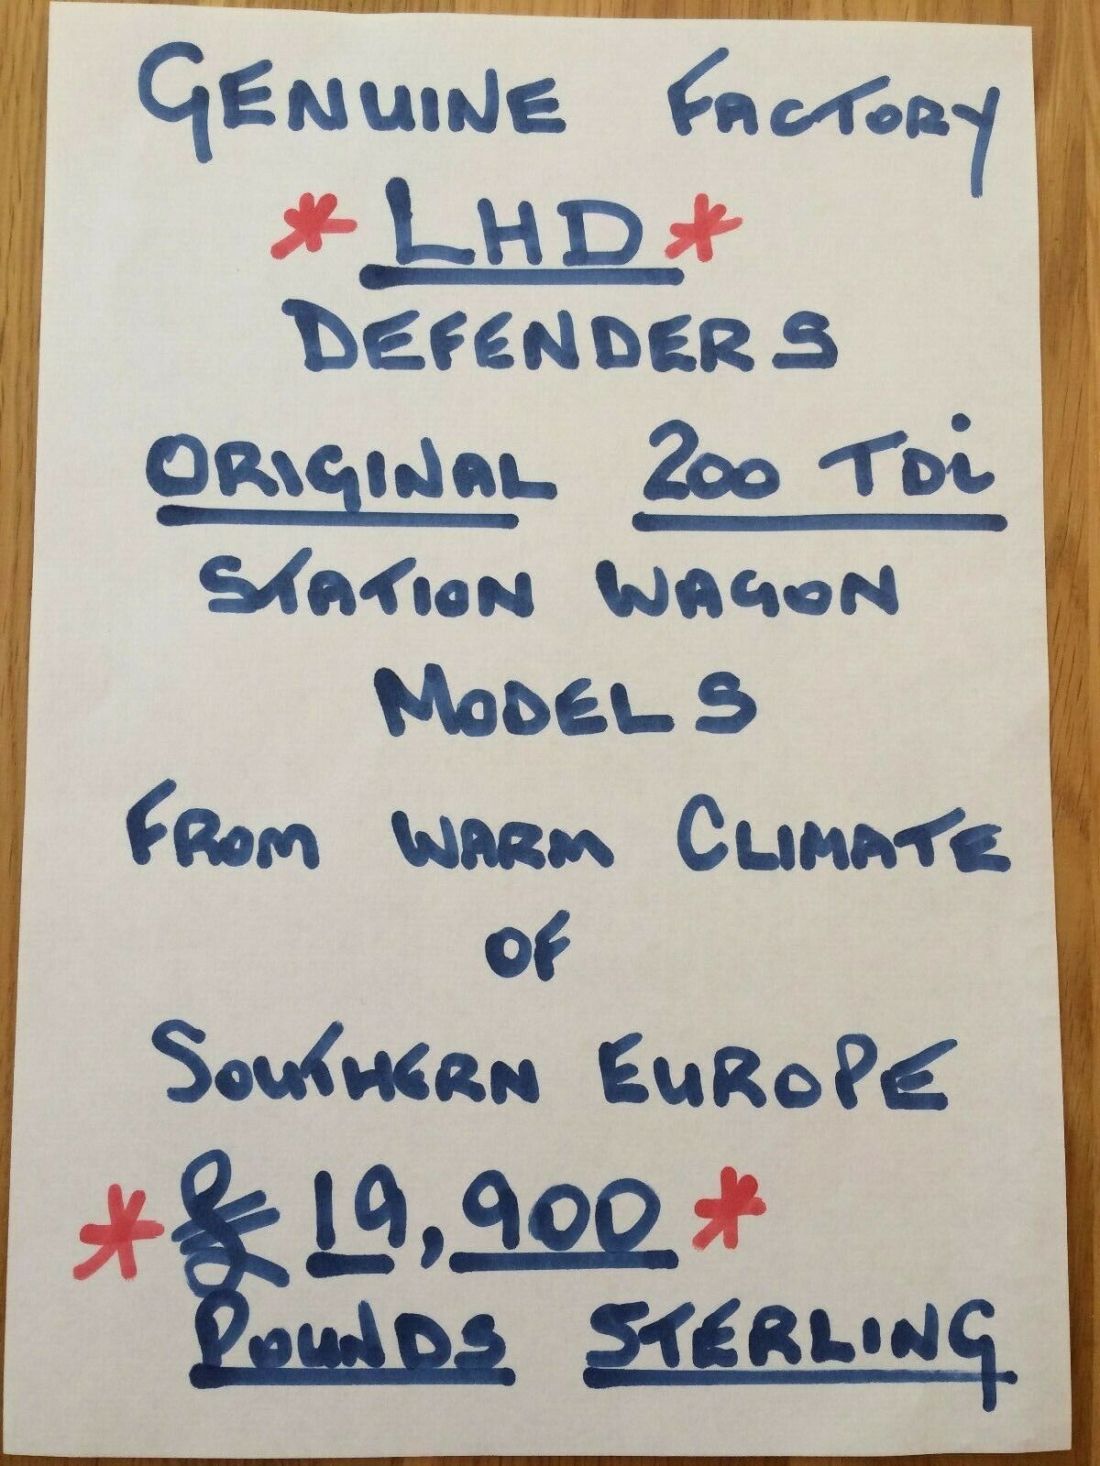 GENUINE FACTORY
* LHD *
DEFENDERS
ORIGINAL 200 TDi
STATION WAGON
MODELS
FROM WARM CLIMATE
OF
SOUTHERN EUROPE
* £ 19,900 *
POUNDS STERLING